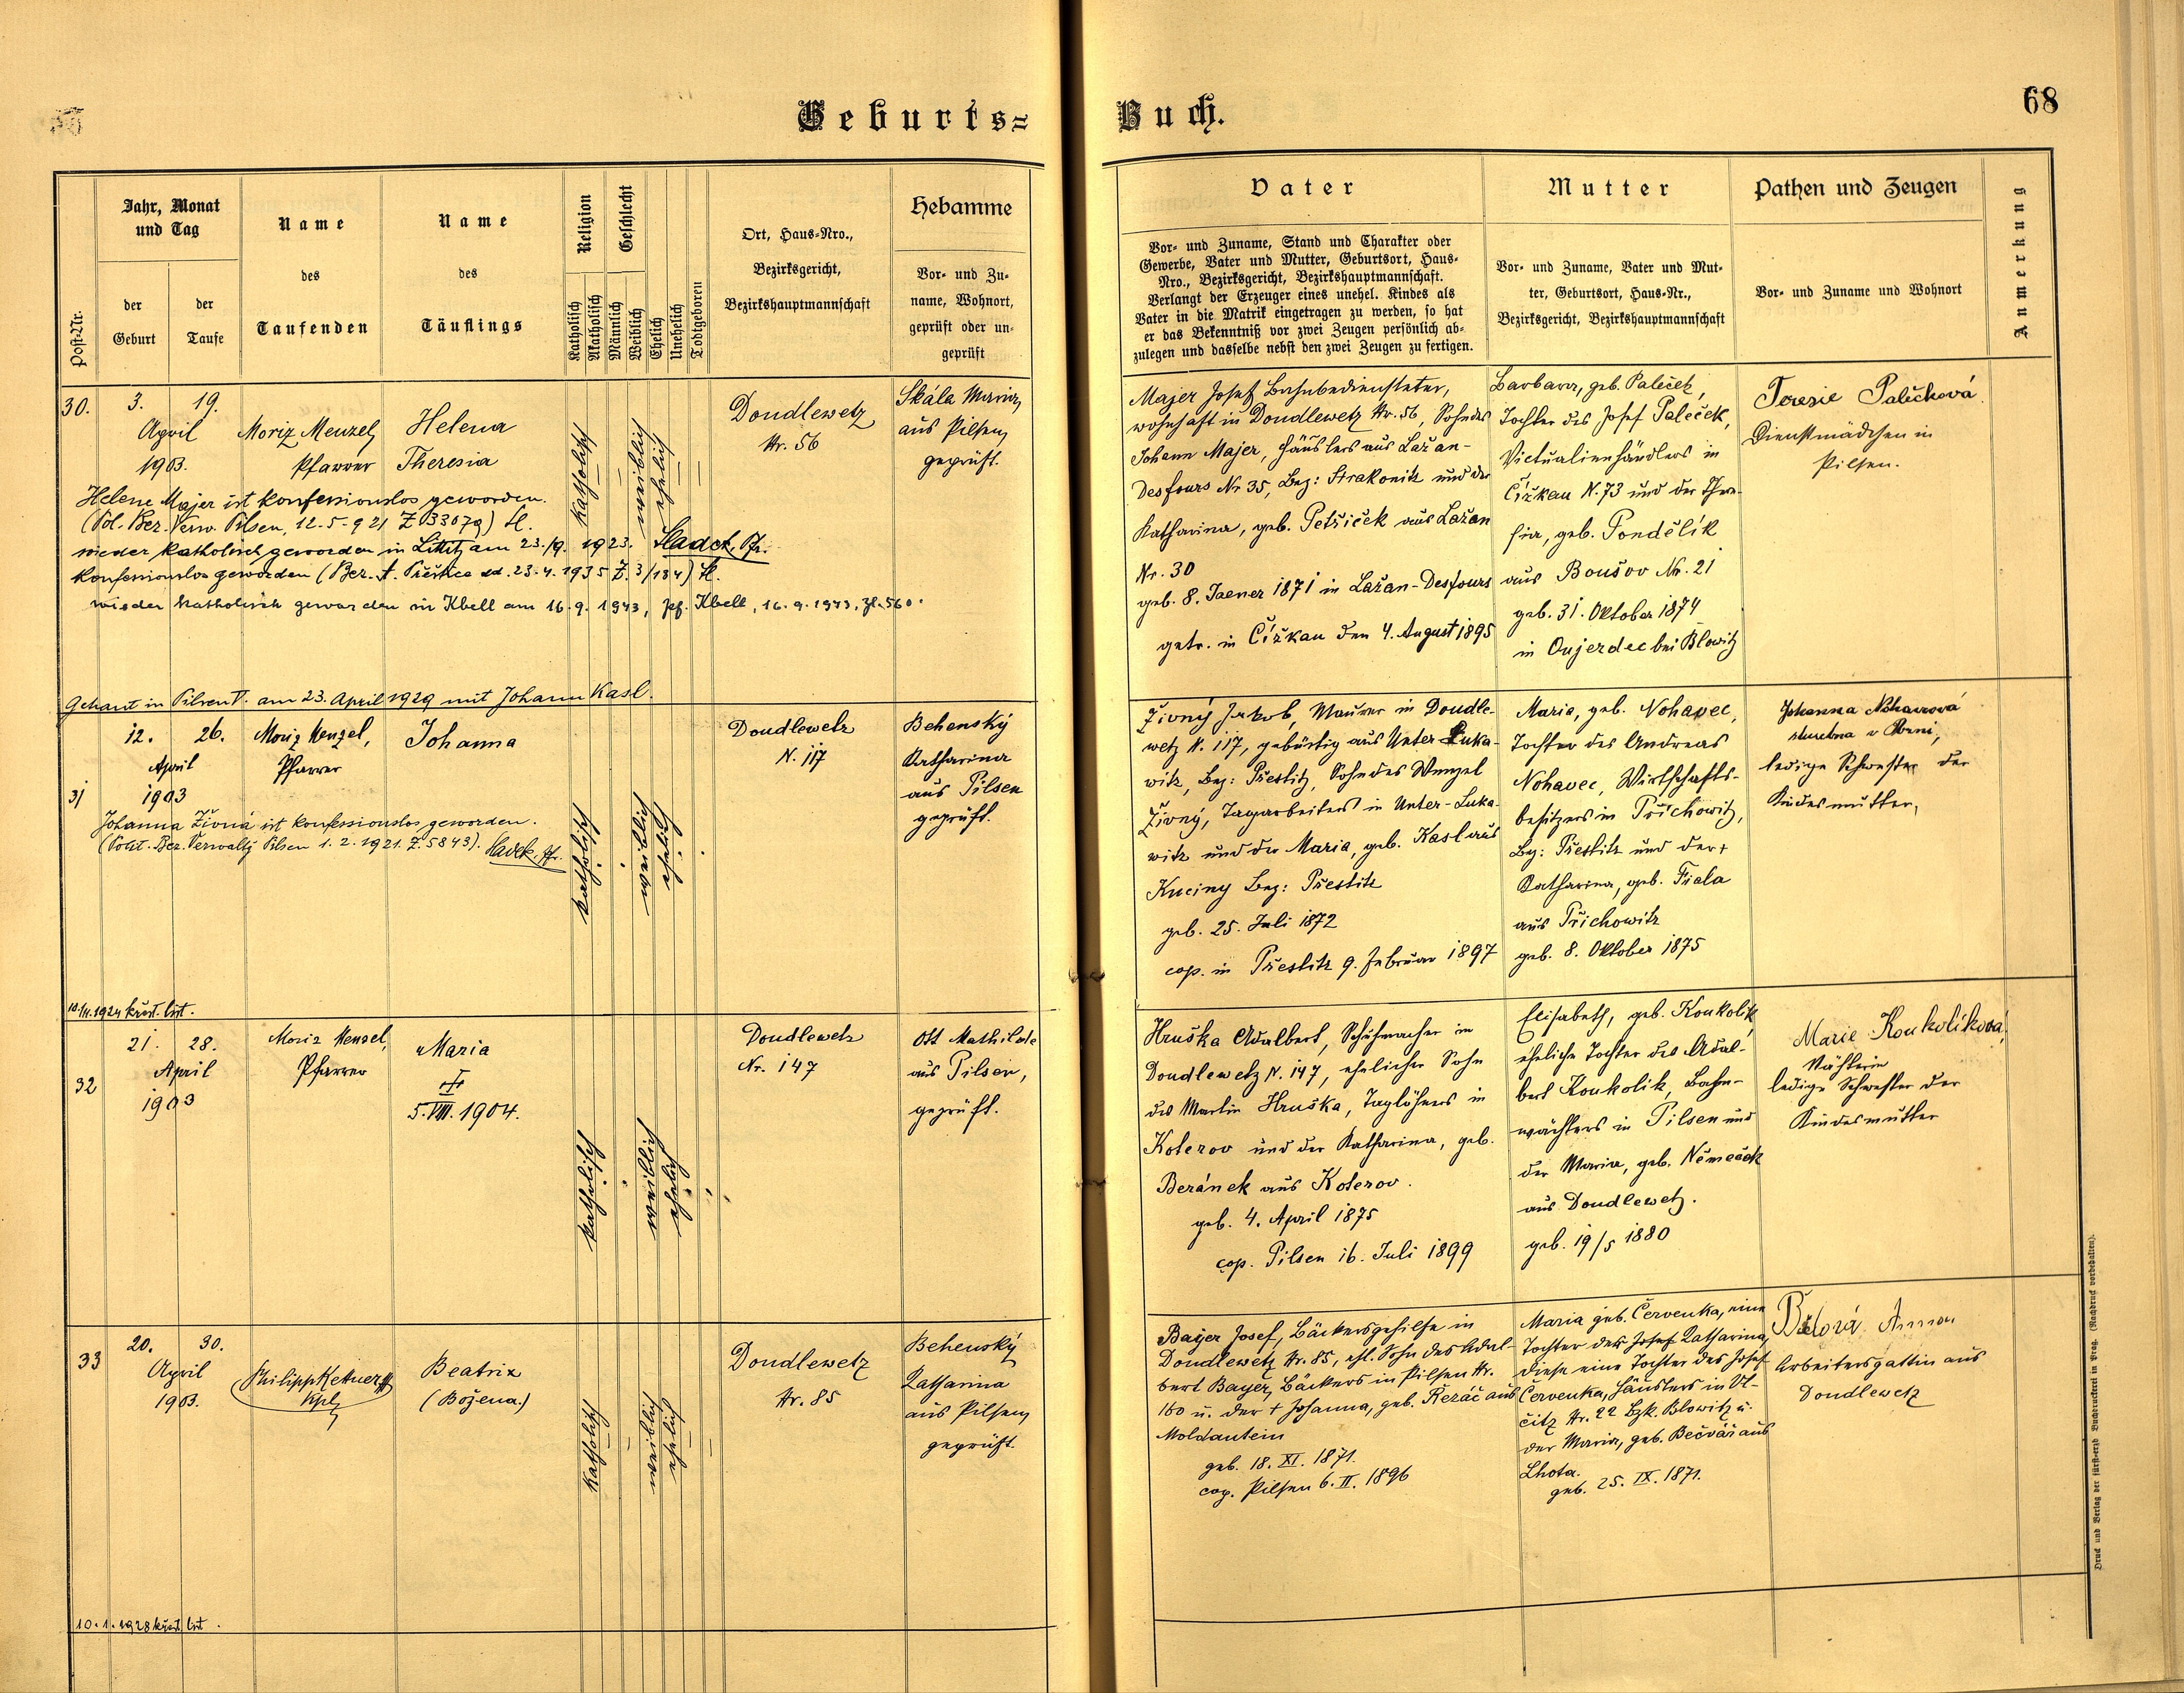 Geburts=
Buch.
68
Post-Nr.
Jahr, Monat
und Tag
der
Geburt
der
Taufe
Name
des
Taufenden
Name
des
Täuflings
Religion
Katholisch
Akatholisch
Geschlecht
Männlich
Weiblich
Ehelich
Unehelich
Todtgeboren
Ort, Haus=Nro.,
Bezirksgericht,
Bezirkshauptmannschaft
Hebamme
Vor= und Zu=
name, Wohnort,
geprüft oder un=
geprüft
Vater
Vor= und Zuname, Stand und Charakter oder
Gewerbe, Vater und Mutter, Geburtsort, Haus=
Nro., Bezirksgericht, Bezirkshauptmannschaft.
Verlangt der Erzeuger eines unehel. Kindes als
Vater in die Matrik eingetragen zu werden, so hat
er das Bekenntniß vor zwei Zeugen persönlich ab=
zulegen und dasselbe nebst den zwei Zeugen zu fertigen.
Mutter
Vor= und Zuname, Vater und Mut=
ter, Geburtsort, Haus=Nr.,
Bezirksgericht, Bezirkshauptmannschaft
Pathen und Zeugen
Vor= und Zuname und Wohnort
Anmerkung
30.
3. 19.
April
1903.
Moriz Menzel,
Pfarrer
Helena
Theresia
katholisch
weiblich
ehelich
Doudlewetz
Nr. 56
Skála Maria,
aus Pilsen,
geprüft.
Helene Majer ist konfessionslos geworden.
(Pol. Bez. Verw. Pilsen, 12.5.921 Z 33079) Sl.
wieder katholisch geworden in Littitz am 23./9. 1923. Sladek, Pfr.
konfessionslos geworden (Bez. A. Přeštice dd. 23.4.1935 Z. 3/134) Sl.
wieder katholisch geworden in Kbell am 16.9.1943, Pf. Kbell, 16.9.1943, Zl. 560.
Getraut in Pilsen V. am 23. April 1929 mit Johann Kasl.
Majer Josef, Bahnbediensteter,
wohnhaft in Doudlewetz Nr. 56, Sohn des
Johann Majer, Häuslers aus Lažan-
Desfours Nr 35, Bez: Strakonitz und der
Katharina, geb. Petřiček aus Lažan
Nr. 30
geb. 8. Jaener 1871 in Lažan-Desfours
getr. in Čížkau den 4. August 1895
Barbara, geb. Paleček,
Tochter des Josef Paleček,
Victualienhändlers in
Čížkau N. 73 und der There-
sia, geb. Pondělík
aus Boušov Nr. 21
geb. 31. Oktober 1874
in Oujezdec bei Blowitz
Terezie Palečková
Dienstmädchen in
Pilsen.
31
12. 26.
April
1903
Moriz Menzel,
Pfarrer
Johanna
katholisch
weiblich
ehelich
Doudlewetz
N. 117
Behenský
Katharina
aus Pilsen
geprüft.
Johanna Živná ist konfessionslos geworden.
(Polit. Bez. Verwaltg Pilsen 1.2.1921. Z. 5843). Sladek, Pfr.
křest. list.
Živný Jakob, Maurer in Doudle-
wetz N. 117, gebürtig aus Unter Luka-
witz, Bez: Přestitz, Sohn des Wenzel
Živný, Tagarbeiters in Unter-Luka-
witz und der Maria, geb. Kasl aus
Kuciny Bez: Přestitz
geb. 25. Juli 1872
cop. in Přestitz 9. Februar 1897
Maria, geb. Nohavec,
Tochter des Andreas
Nohavec, Wirtschafts-
besitzers in Přichowitz,
Bez: Přestitz und der +
Katharina, geb. Fiala
aus Přichowitz
geb. 8. Oktober 1875
Johanna Nohavcová
služebná v Plzni,
ledige Schwester der
Kindesmutter,
32
21. 28.
April
1903
Moriz Menzel,
Pfarrer
Maria
5. VIII. 1904.
katholisch
weiblich
ehelich
Doudlewetz
Nr. 147
Ott Mathilde
aus Pilsen,
geprüft.
Hruška Adalbert, Schuhmacher in
Doudlewetz N. 147, ehelicher Sohn
des Martin Hruška, Taglöhners in
Koterov und der Katharina, geb.
Beránek aus Koterov.
geb. 4. April 1875
cop. Pilsen 16. Juli 1899
Elisabeth, geb. Koukolik,
eheliche Tochter des Adal-
bert Koukolik, Bahn-
wächters in Pilsen und
der Maria, geb. Němeček
aus Doudlewetz.
geb. 19/5 1880
Marie Koukolíková,
Nähterin
ledige Schwester der
Kindesmutter
33
20. 30.
April
1903.
Philipp
Kpl.
Beatrix
(Božena.)
katholisch
weiblich
ehelich
Doudlewetz
Nr. 85
Behenský
Katharina
aus Pilsen,
geprüft.
10.1.1928 křest. list.
Bayer Josef, Bäckersgehilfe in
Doudlewetz Nr. 85, ehl. Sohn des Adal-
bert Bayer, Bäckers in Pilsen Nr.
160 u. der + Johanna, geb. Řezáč aus
Moldautein
geb. 18. XI. 1871.
cop. Pilsen 6. II. 1896
Maria geb. Červenka, eine
Tochter der Josef Katharina,
diese eine Tochter des Josef
Červenka, Häuslers in Vl-
čitz Nr. 22 Bzk. Blowitz u.
der Maria, geb. Bečvář aus
Lhota.
geb. 25. IX. 1871.
Anna
Arbeitersgattin aus
Doudlewetz
Druck und Verlag der fürsterzb. Buchdruckerei in Prag. (Nachdruck vorbehalten).